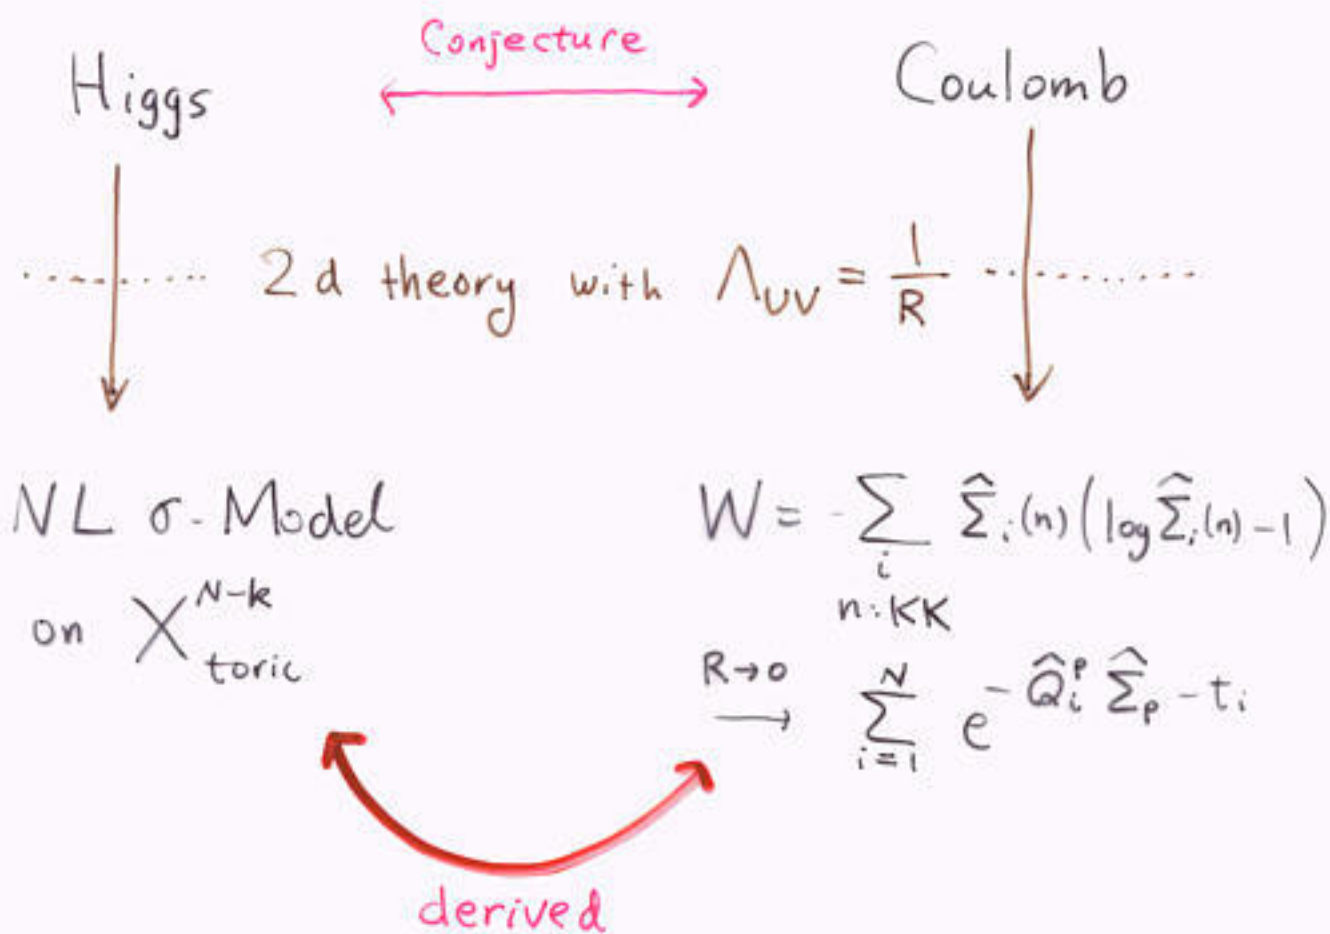 Conjecture
Higgs ⟷ Coulomb
2d theory with Λ_UV = 1/R
NL σ-Model
on X^{N-k}_{toric}
W = -∑_{i, n:KK} Σ̂_i(n)(log Σ̂_i(n) - 1)
R→0 ⟶ ∑_{i=1}^{N} e^{-Q̂_i^p Σ̂_p - t_i}
derived